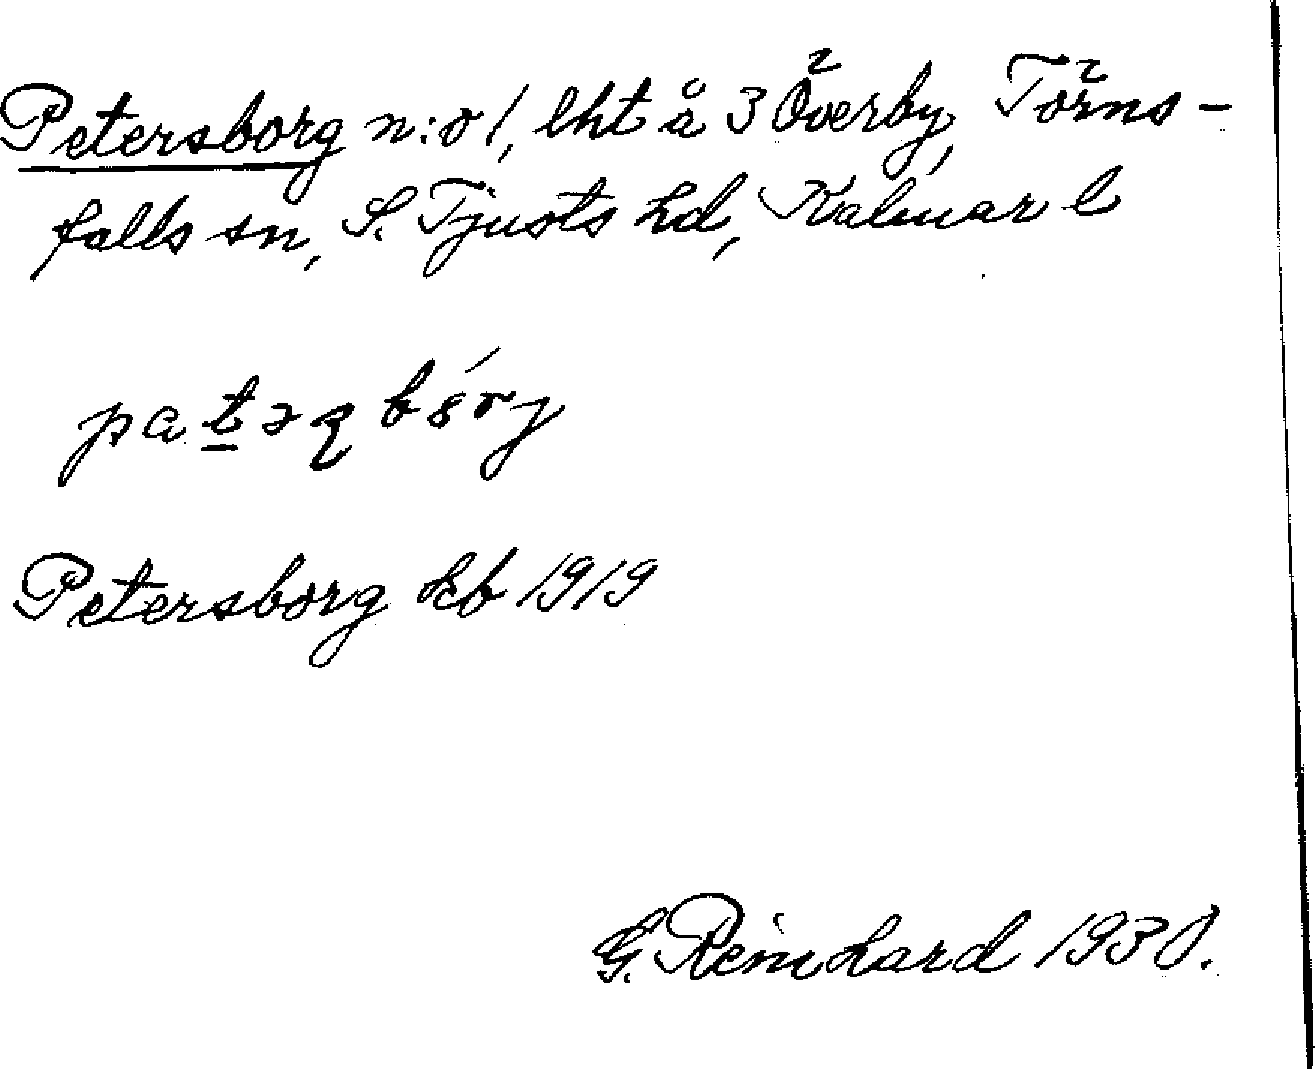 Petersborg n:o 1, lht å 3 Överby, Törns-
falls sn, S. Tjusts hd, Kalmar l
Petersborg kb 1919
G. Reinhard 1930.